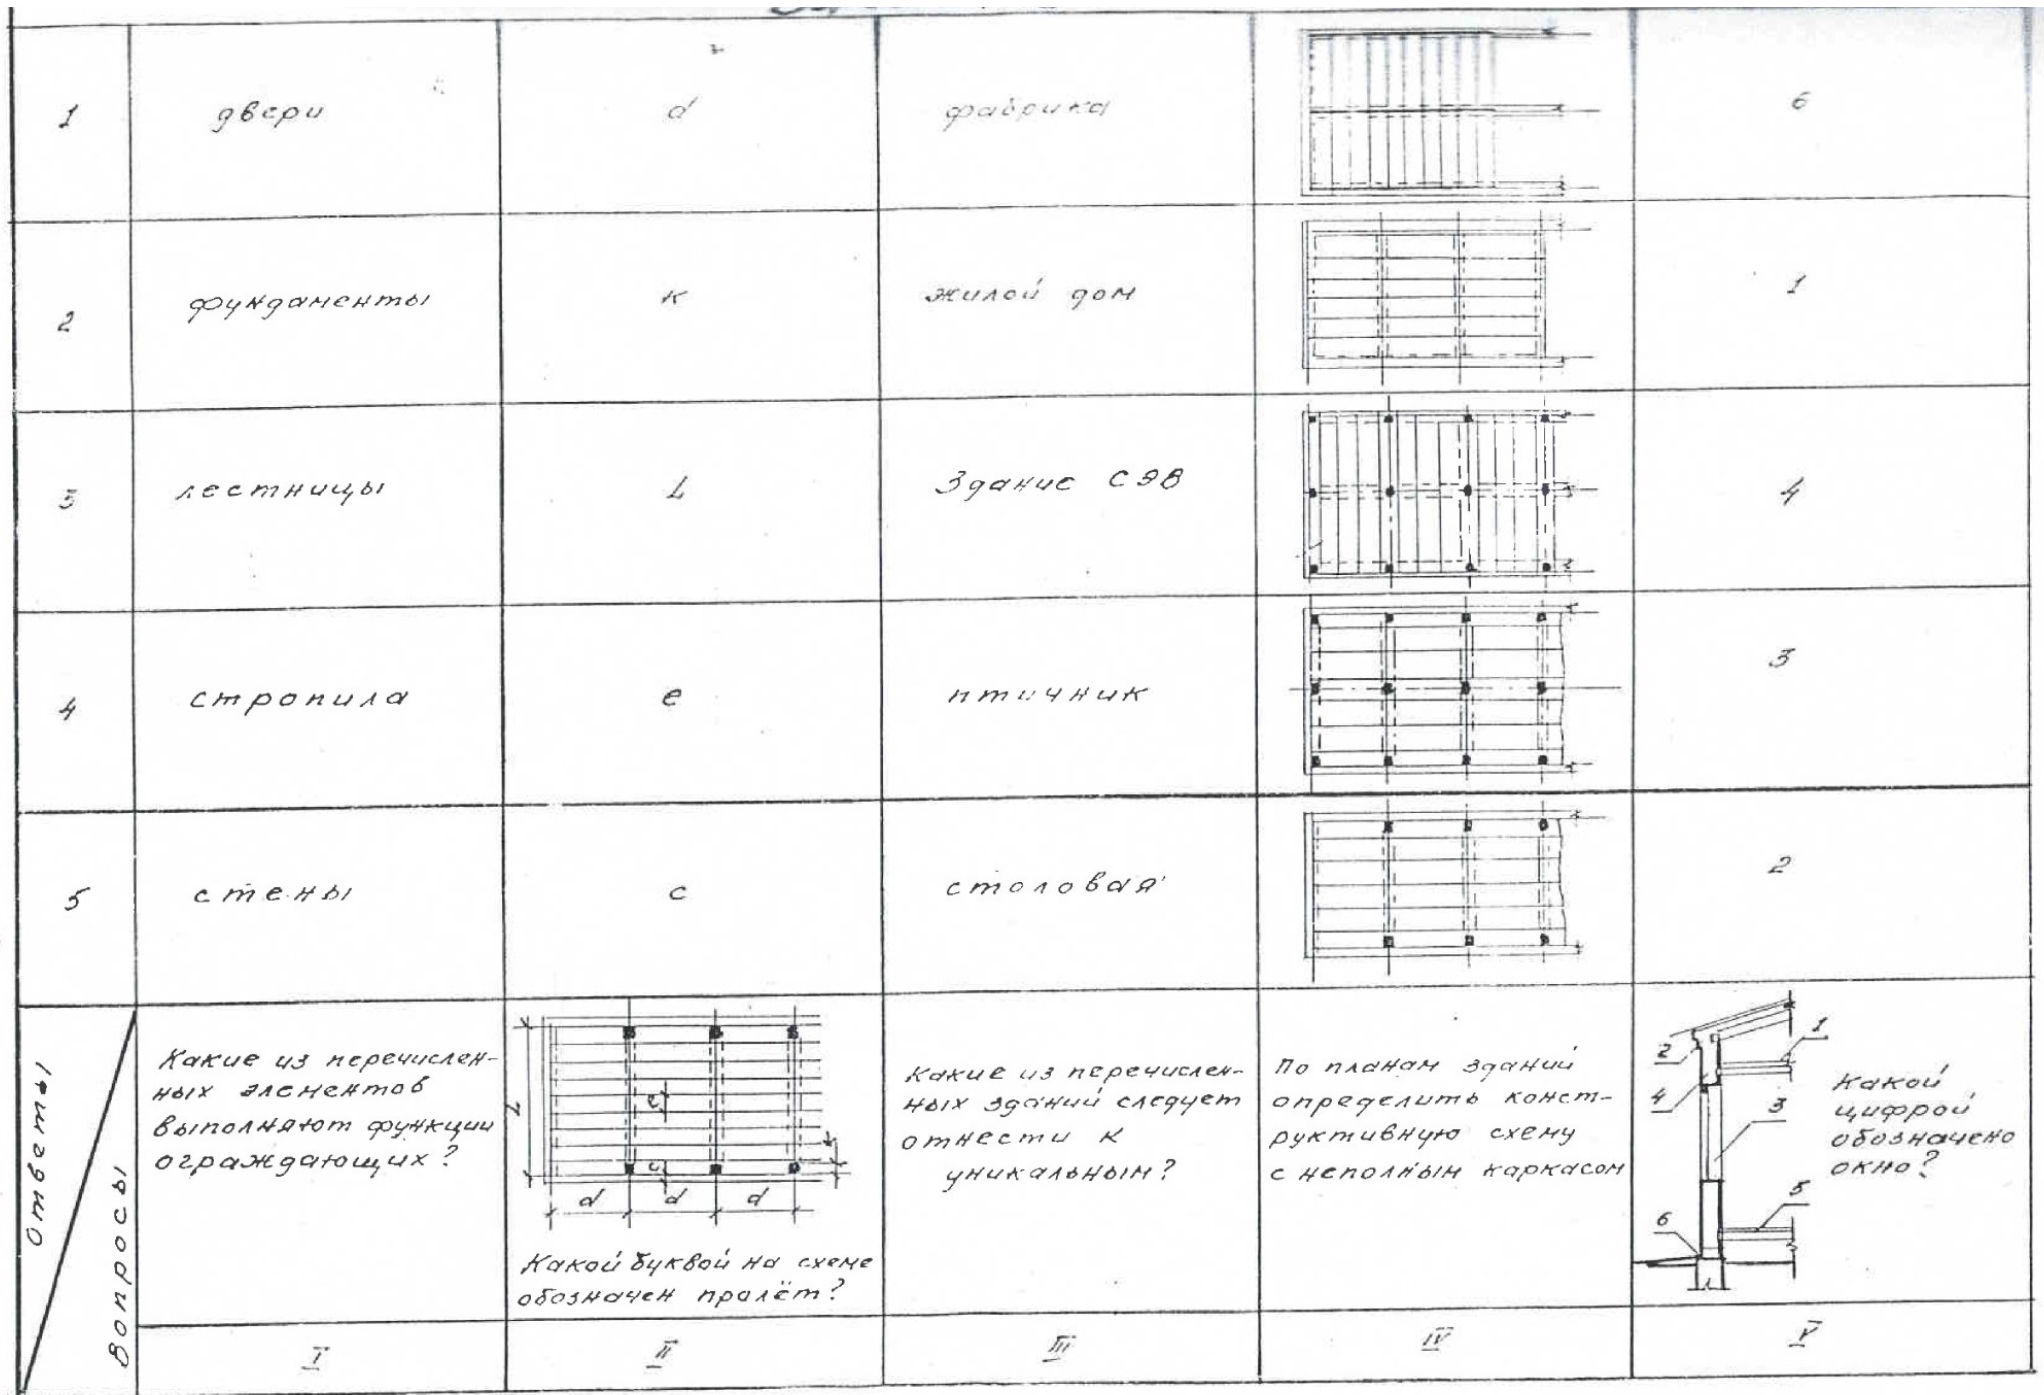 1
двери
d
фабрика
6
2
фундаменты
к
жилой дом
1
3
лестницы
L
Здание СЭВ
4
4
стропила
е
птичник
3
5
стены
с
столовая
2
Ответы
Вопросы
Какие из перечислен-
ных элементов
выполняют функции
ограждающих?
L
е
с
к
d
d
d
Какой буквой на схеме
обозначен пролёт?
Какие из перечислен-
ных зданий следует
отнести к
уникальным?
По планам зданий
определить конст-
руктивную схему
с неполным каркасом
1
2
4
3
5
6
Какой
цифрой
обозначено
окно?
I
II
III
IV
V